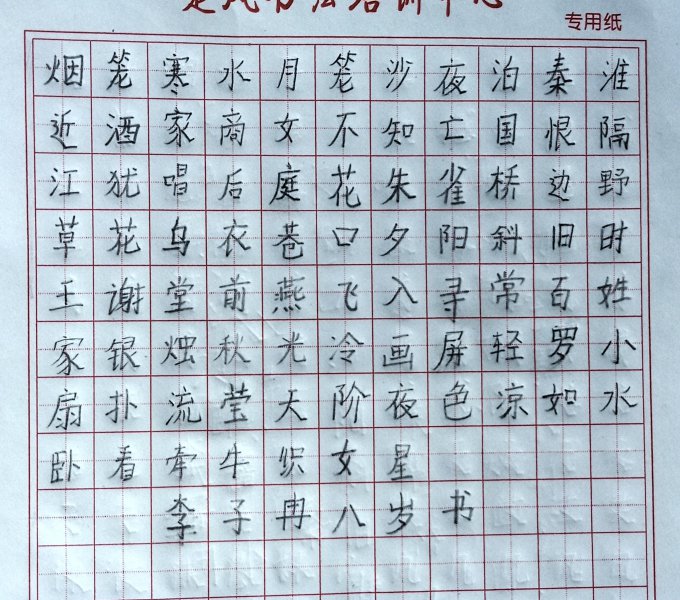 专用纸
烟笼寒水月笼沙夜泊秦淮
近酒家商女不知亡国恨隔
江犹唱后庭花朱雀桥边野
草花乌衣巷口夕阳斜旧时
王谢堂前燕飞入寻常百姓
家银烛秋光冷画屏轻罗小
扇扑流莹天阶夜色凉如水
卧看牵牛织女星
李子冉八岁书